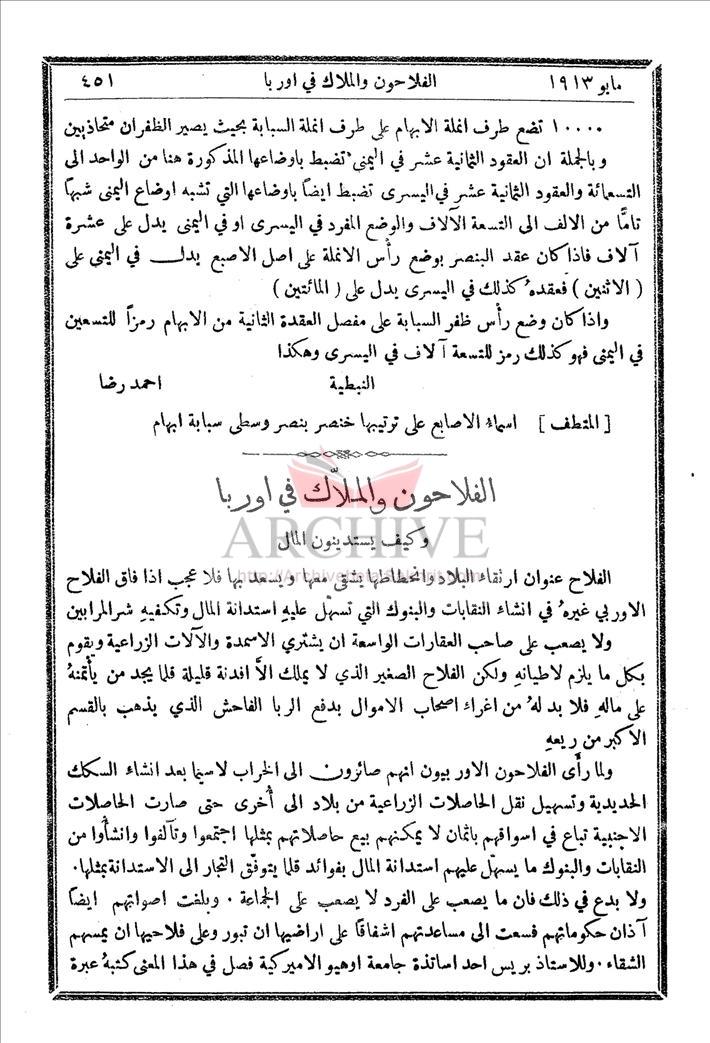 مايو ١٩١٣ الفلاحون والملاك في اوربا ٤٥١
١٠٠٠٠ تضع طرف انملة الابهام على طرف انملة السبابة بحيث يصير الظفران متحاذيين
وبالجملة ان العقود الثمانية عشر في اليمنى تضبط باوضاعها المذكورة هنا من الواحد الى
التسعمائة والعقود الثمانية عشر في اليسرى تضبط ايضاً باوضاعها التي تشبه اوضاع اليمنى شبهاً
تامًّا من الالف الى التسعة الآلاف والوضع المفرد في اليسرى او في اليمنى يدل على عشرة
آلاف فاذا كان عقد البنصر بوضع رأس الانملة على اصل الاصبع يدل في اليمنى على
( الاثنين ) فعقدهُ كذلك في اليسرى يدل على ( المائتين )
واذا كان وضع رأس ظفر السبابة على مفصل العقدة الثانية من الابهام رمزاً للتسعين
في اليمنى فهو كذلك رمز للتسعة آلاف في اليسرى وهكذا
النبطية احمد رضا
[ المقتطف ] اسماء الاصابع على توتيبها خنصر بنصر وسطى سبابة ابهام
الفلاحون والملاّك في اوربا
ARCHIVE
وكيف يستدينون المال
الفلاح عنوان ارتقاء البلاد وانحطاطها يشقى معها ويسعد بها فلا عجب اذا فاق الفلاح
الاوربي غيرهُ في انشاء النقابات والبنوك التي تسهل عليهِ استدانة المال وتكفيهِ شر المرابين
ولا يصعب على صاحب العقارات الواسعة ان يشتري الاسمدة والآلات الزراعية ويقوم
بكل ما يلزم لاطيانهِ ولكن الفلاح الصغير الذي لا يملك الاَّ افدنة قليلة قلما يجد من يأتمنهُ
على مالهِ فلا بد لهُ من اغراء اصحاب الاموال بدفع الربا الفاحش الذي يذهب بالقسم
الاكبر من ريعهِ
ولما رأى الفلاحون الاوربيون انهم صائرون الى الخراب لاسيما بعد انشاء السكك
الحديدية وتسهيل نقل الحاصلات الزراعية من بلاد الى أخرى حتى صارت الحاصلات
الاجنبية تباع في اسواقهم باثمان لا يمكنهم بيع حاصلاتهم بمثلها اجتمعوا وتآلفوا وانشأوا من
النقابات والبنوك ما يسهل عليهم استدانة المال بفوائد قلما يتوفّق التجار الى الاستدانة بمثلها.
ولا بدع في ذلك فان ما يصعب على الفرد لا يصعب على الجماعة . وبلغت اصواتهم ايضاً
آذان حكوماتهم فسعت الى مساعدتهم اشفاقاً على اراضيها ان تبور وعلى فلاحيها ان يمسهم
الشقاء . وللاستاذ بريس احد اساتذة جامعة اوهيو الاميركية فصل في هذا المعنى كتبهُ عبرة